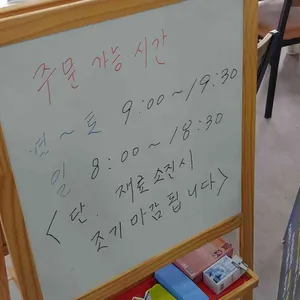 주문 가능 시간
월~토 9:00~19:30
일 8:00~18:30
<단. 재료 소진시
조기 마감 됩니다>